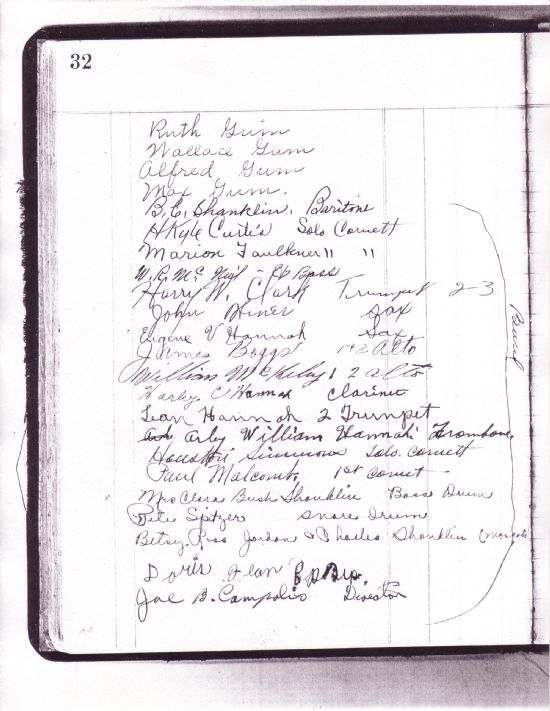 32
Ruth Gum
Wallace Gum
Alfred Gum
Max Gum.
B. E. Shanklin. Baritone
H Kyle Curtis Solo Cornett
Marion Faulkner " "
W. R. Mc - Eb Bass
Harry W. Clark Trumpet 2-3
John Hiner Sax
Eugene V Hannah Sax
James Boggs 1+2 Alto
William McKelvy 1 2 alto
Harley C Hannah Clarinet
Jean Hannah 2 Trumpet
Arly William Hannah Trombone
Houston Simmons solo cornett
Paul Malcomb 1st Cornet
Mrs Clara Bush Shanklin Bass Drum
Pete Spitzer snare Drum
Betsy Ross Jordan & Charles Shanklin (mascots
Doris Jean
Joe B. Campolio Director
Band